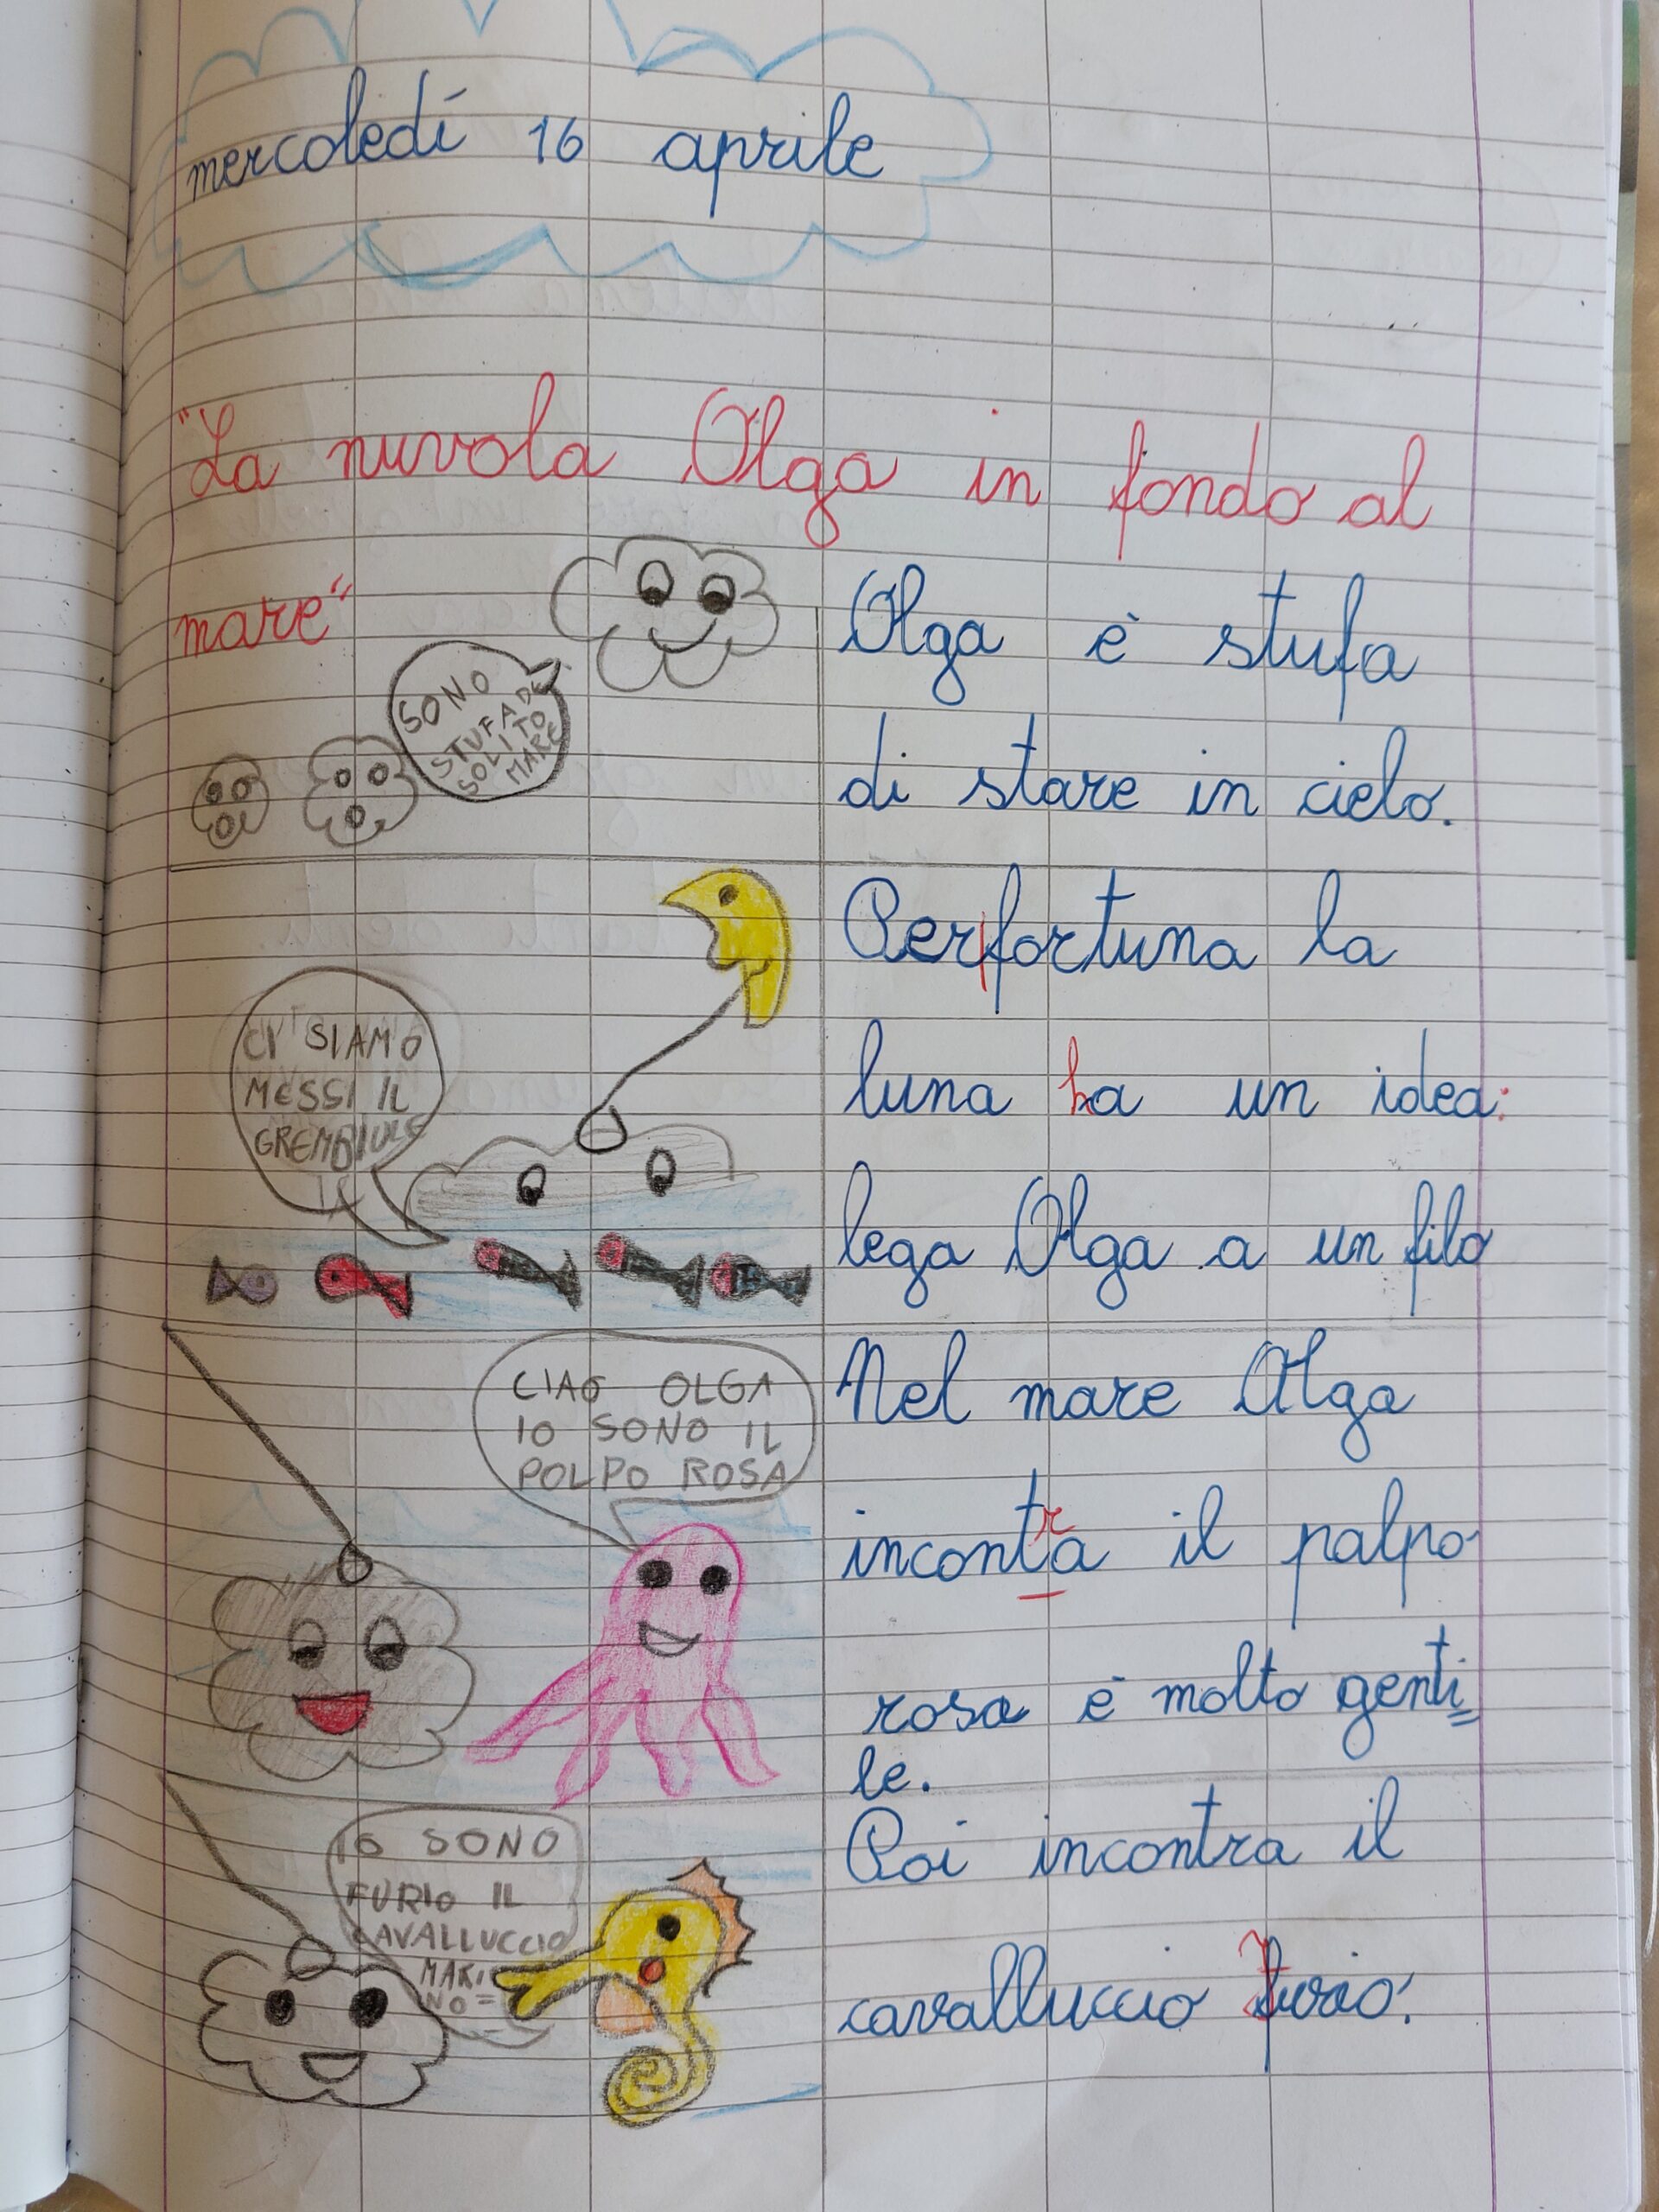 mercoledí 16 aprile
"La nuvola Olga in fondo al
mare"
SONO
STUFA DI
SOLITO
MARE
Olga è stufa
di stare in cielo.
CI SIAMO
MESSI IL
GREMBIULE
Perfortuna la
luna ha un idea:
lega Olga a un filo
CIAO OLGA
IO SONO IL
POLPO ROSA
Nel mare Olga
incontra il palpo
rosa è molto genti
le.
IO SONO
FURIO IL
CAVALLUCCIO
MARI
NO=
Poi incontra il
cavalluccio Furio.